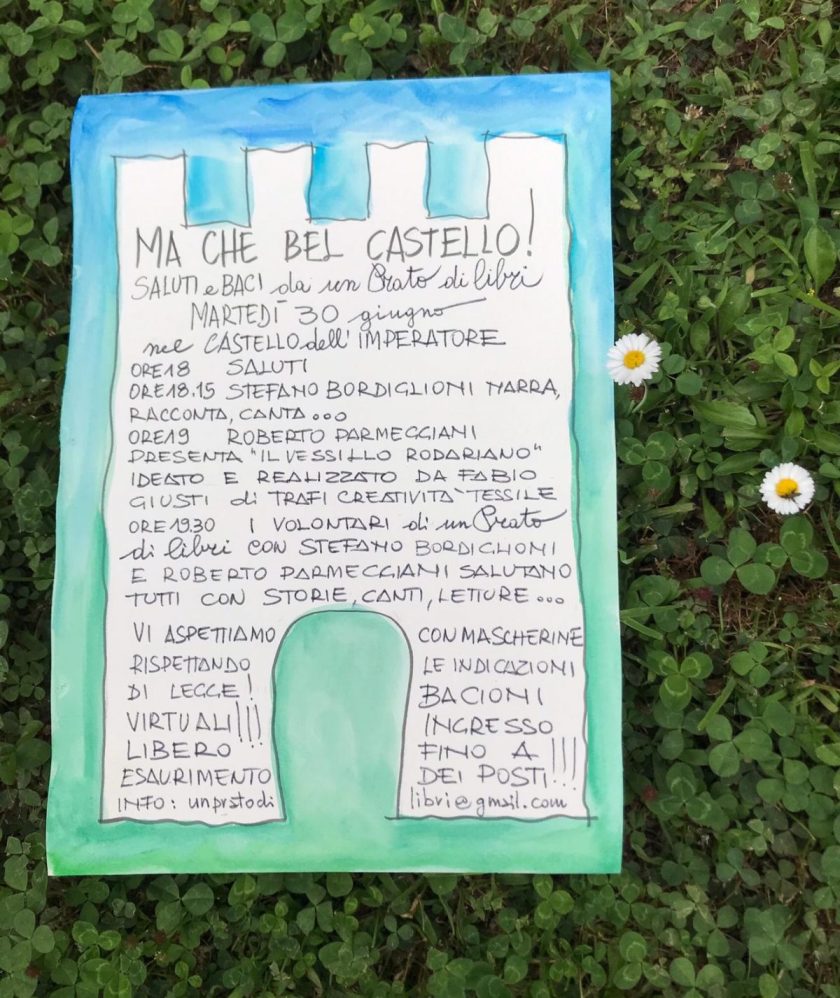 MA CHE BEL CASTELLO!
SALUTI e BACI da un Prato di libri
MARTEDÌ 30 giugno
nel CASTELLO dell'IMPERATORE
ORE 18 SALUTI
ORE 18.15 STEFANO BORDIGLIONI NARRA,
RACCONTA, CANTA...
ORE 19 ROBERTO PARMEGGIANI
PRESENTA "IL VESSILLO RODARIANO"
IDEATO E REALIZZATO DA FABIO
GIUSTI di TRAFI CREATIVITA' TESSILE
ORE 19.30 I VOLONTARI di un Prato
di libri CON STEFANO BORDIGLIONI
E ROBERTO PARMEGGIANI SALUTANO
TUTTI CON STORIE, CANTI, LETTURE...
VI ASPETTIAMO CON MASCHERINE
RISPETTANDO LE INDICAZIONI
DI LEGGE! BACIONI
VIRTUALI!!! INGRESSO
LIBERO FINO A
ESAURIMENTO DEI POSTI!!!
INFO: unpratodi libri@gmail.com